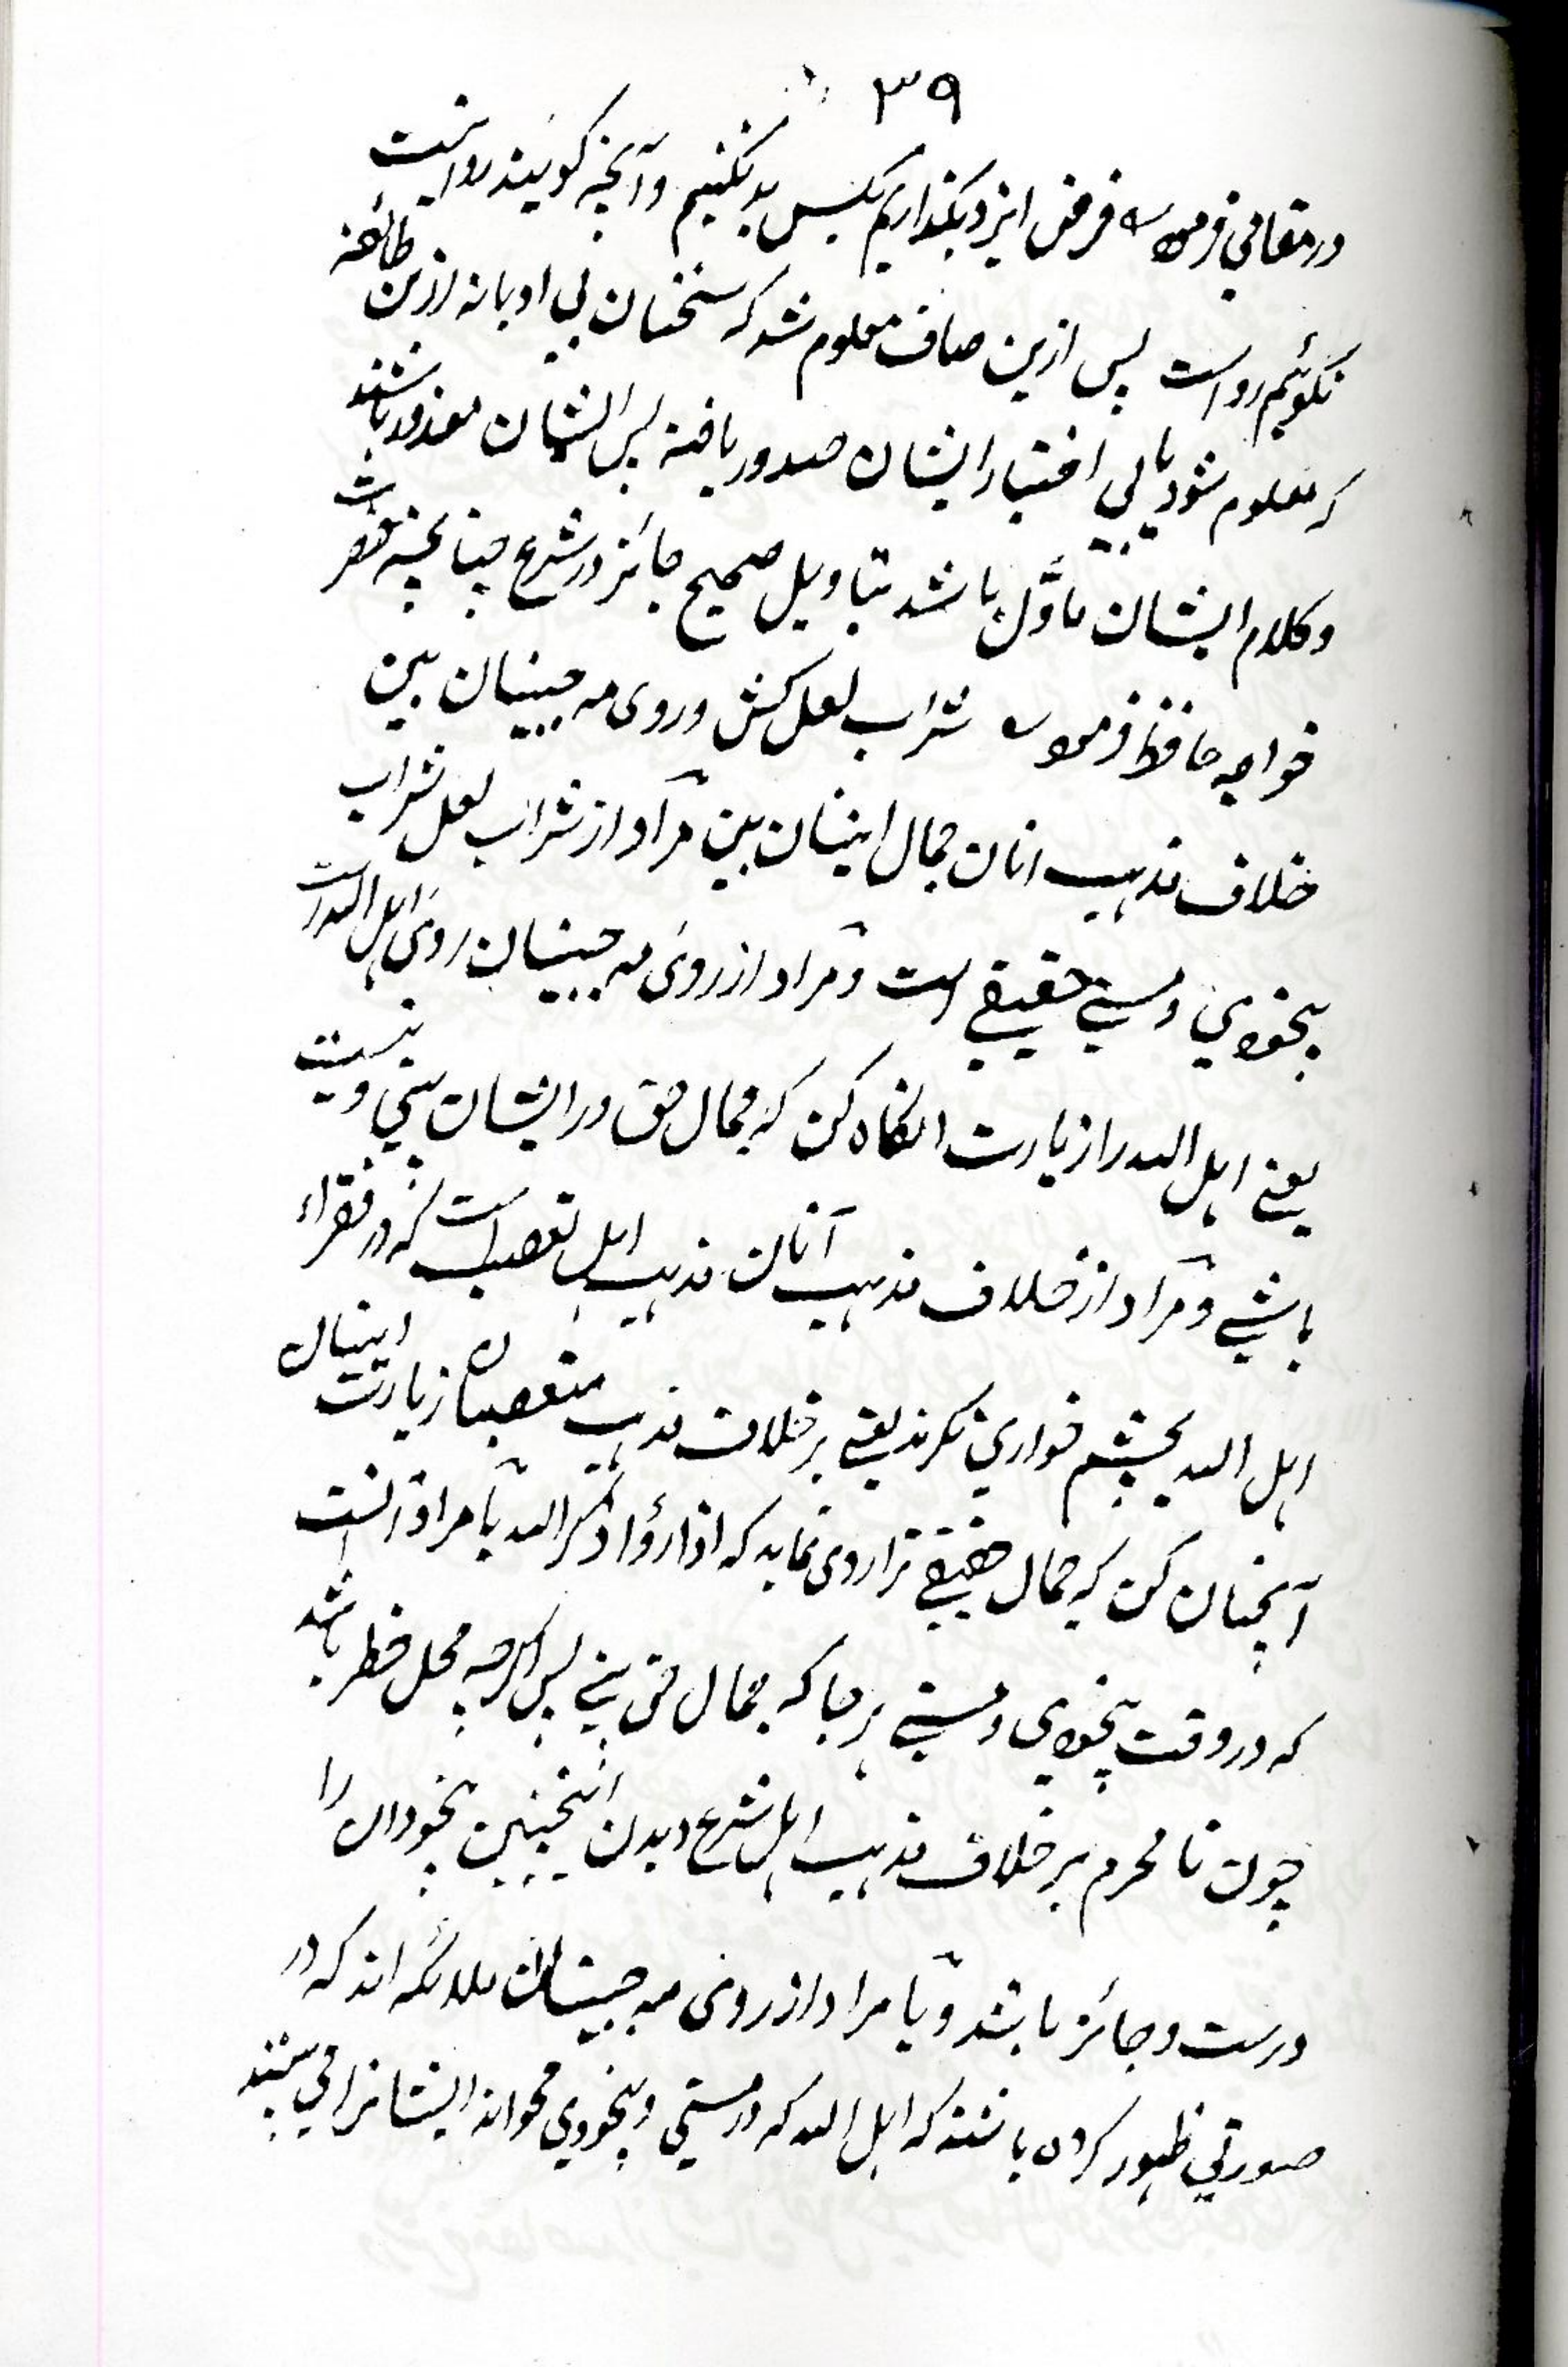 ۳۹
در مقامي فرموده فرض ایزد بگذاریم بکس بد نکنیم وآنچه گویند روا نیست
نگوئیم رواست پس ازین صاف معلوم شد که سخنان بي ادبانه ازین طائفه
که معلوم شود یا بي اختیار ایشان صدور یافته پس ایشان معذور باشند
وکلام ایشان ماَوَّل باشد بتاویل صحیح جائز در شرع چنانچه حضرت
خواجه حافظ فرموده شراب لعل کش وروی مه جبینان بین
خلاف مذهب انان جمال اینان بین مراد از شراب لعل شراب
بیخودي ومستي حقیقي است ومراد از روی مه جبینان روی اهل الله است
یعنے اهل الله را زیارت نگاه کن که جمال حق در ایشان بیني ونیست
باشي ومراد از خلاف مذهب آنان مذهب اهل تعصب است که در فقراء
اهل الله بچشم خواري نگرند یعني برخلاف مذهب متعصبان زیارت اینان
آنچنان کن که جمال حقیقي ترا روی نماید که اذا رؤا ذکر الله یا مراد آنست
که در وقت بیخودي ومستي هرجا که جمال حق بیني پس اگرچه محل خطر باشد
چون نامحرم برخلاف مذهب اهل شرع دیدن اینچنین بیخودان را
درست وجائز باشد ویا مراد از روی مه جبینان ملائکه اند که در
صورتي ظهور کرده باشند که اهل الله که در مستي وبیخودي محواند ایشانرا مي بینند